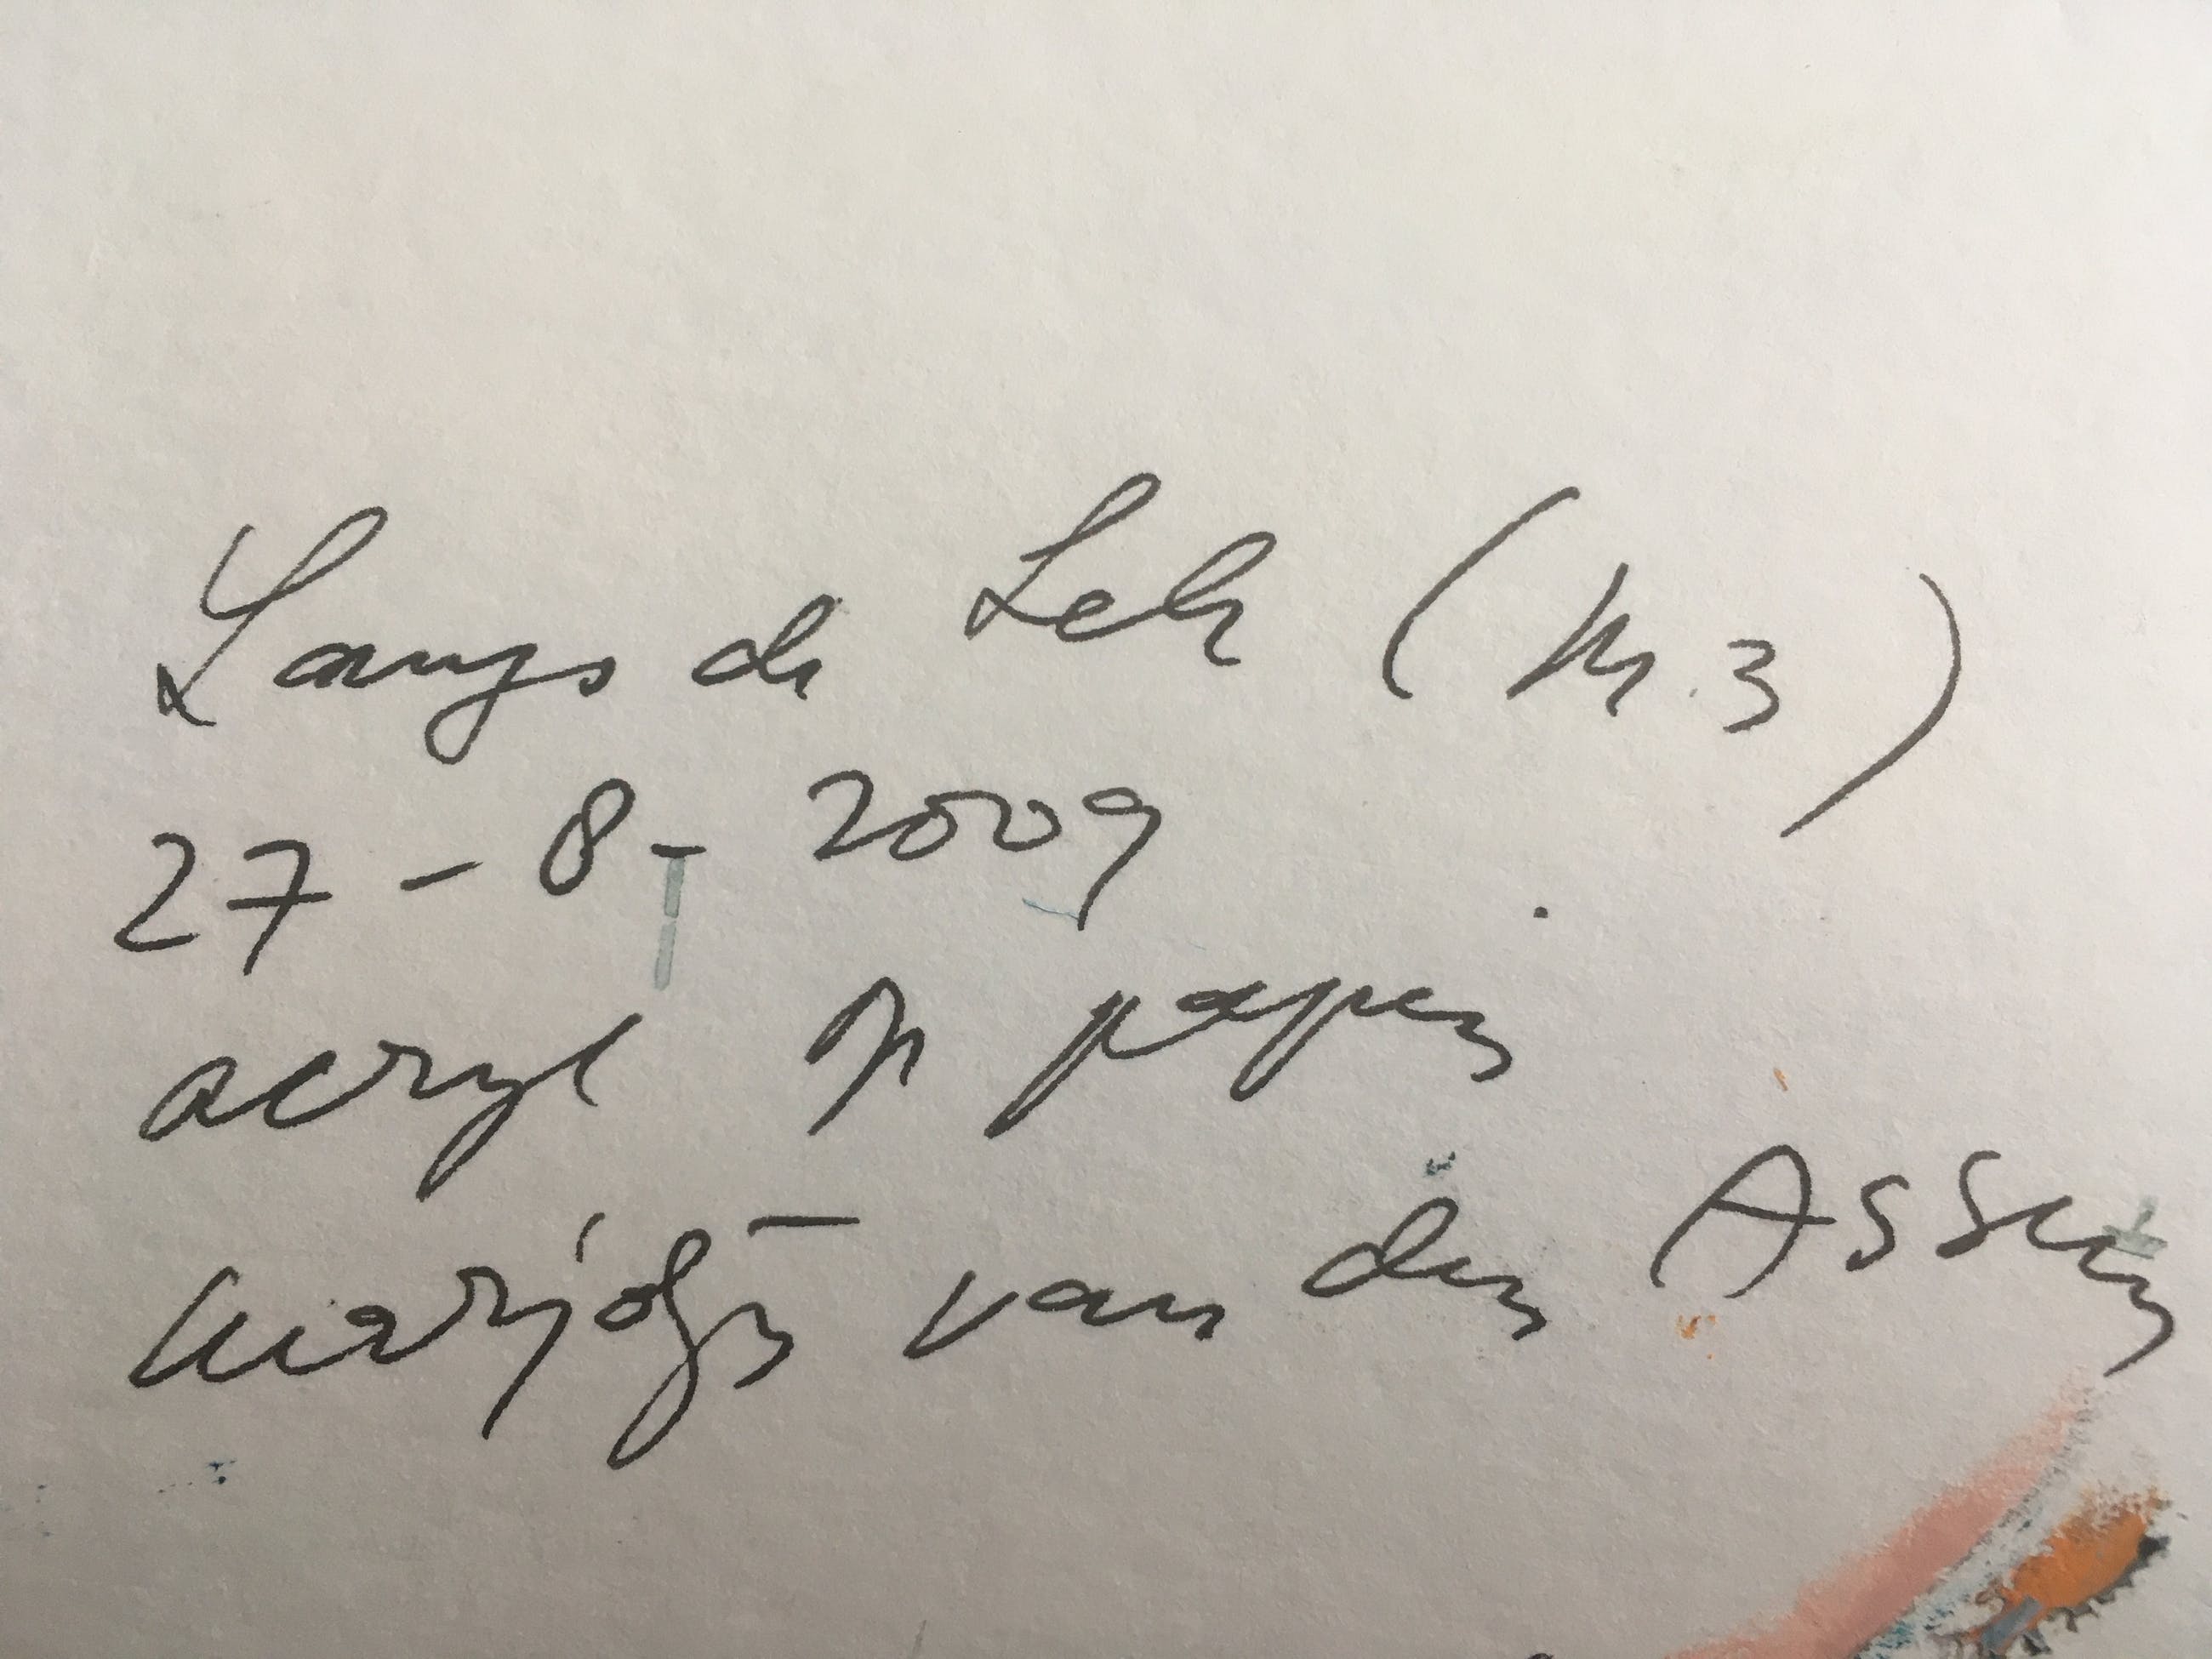 Langs de Lek (nr. 3)
27-8-2009
acryl op papier
Marjolijn van den Assem